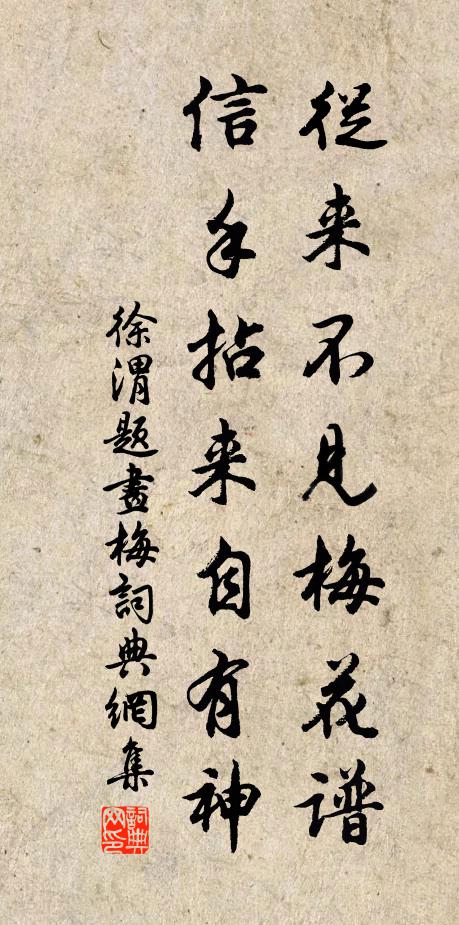 從来不見梅花譜
信手拈来自有神
徐渭題畫梅詞典網集
詞典网印